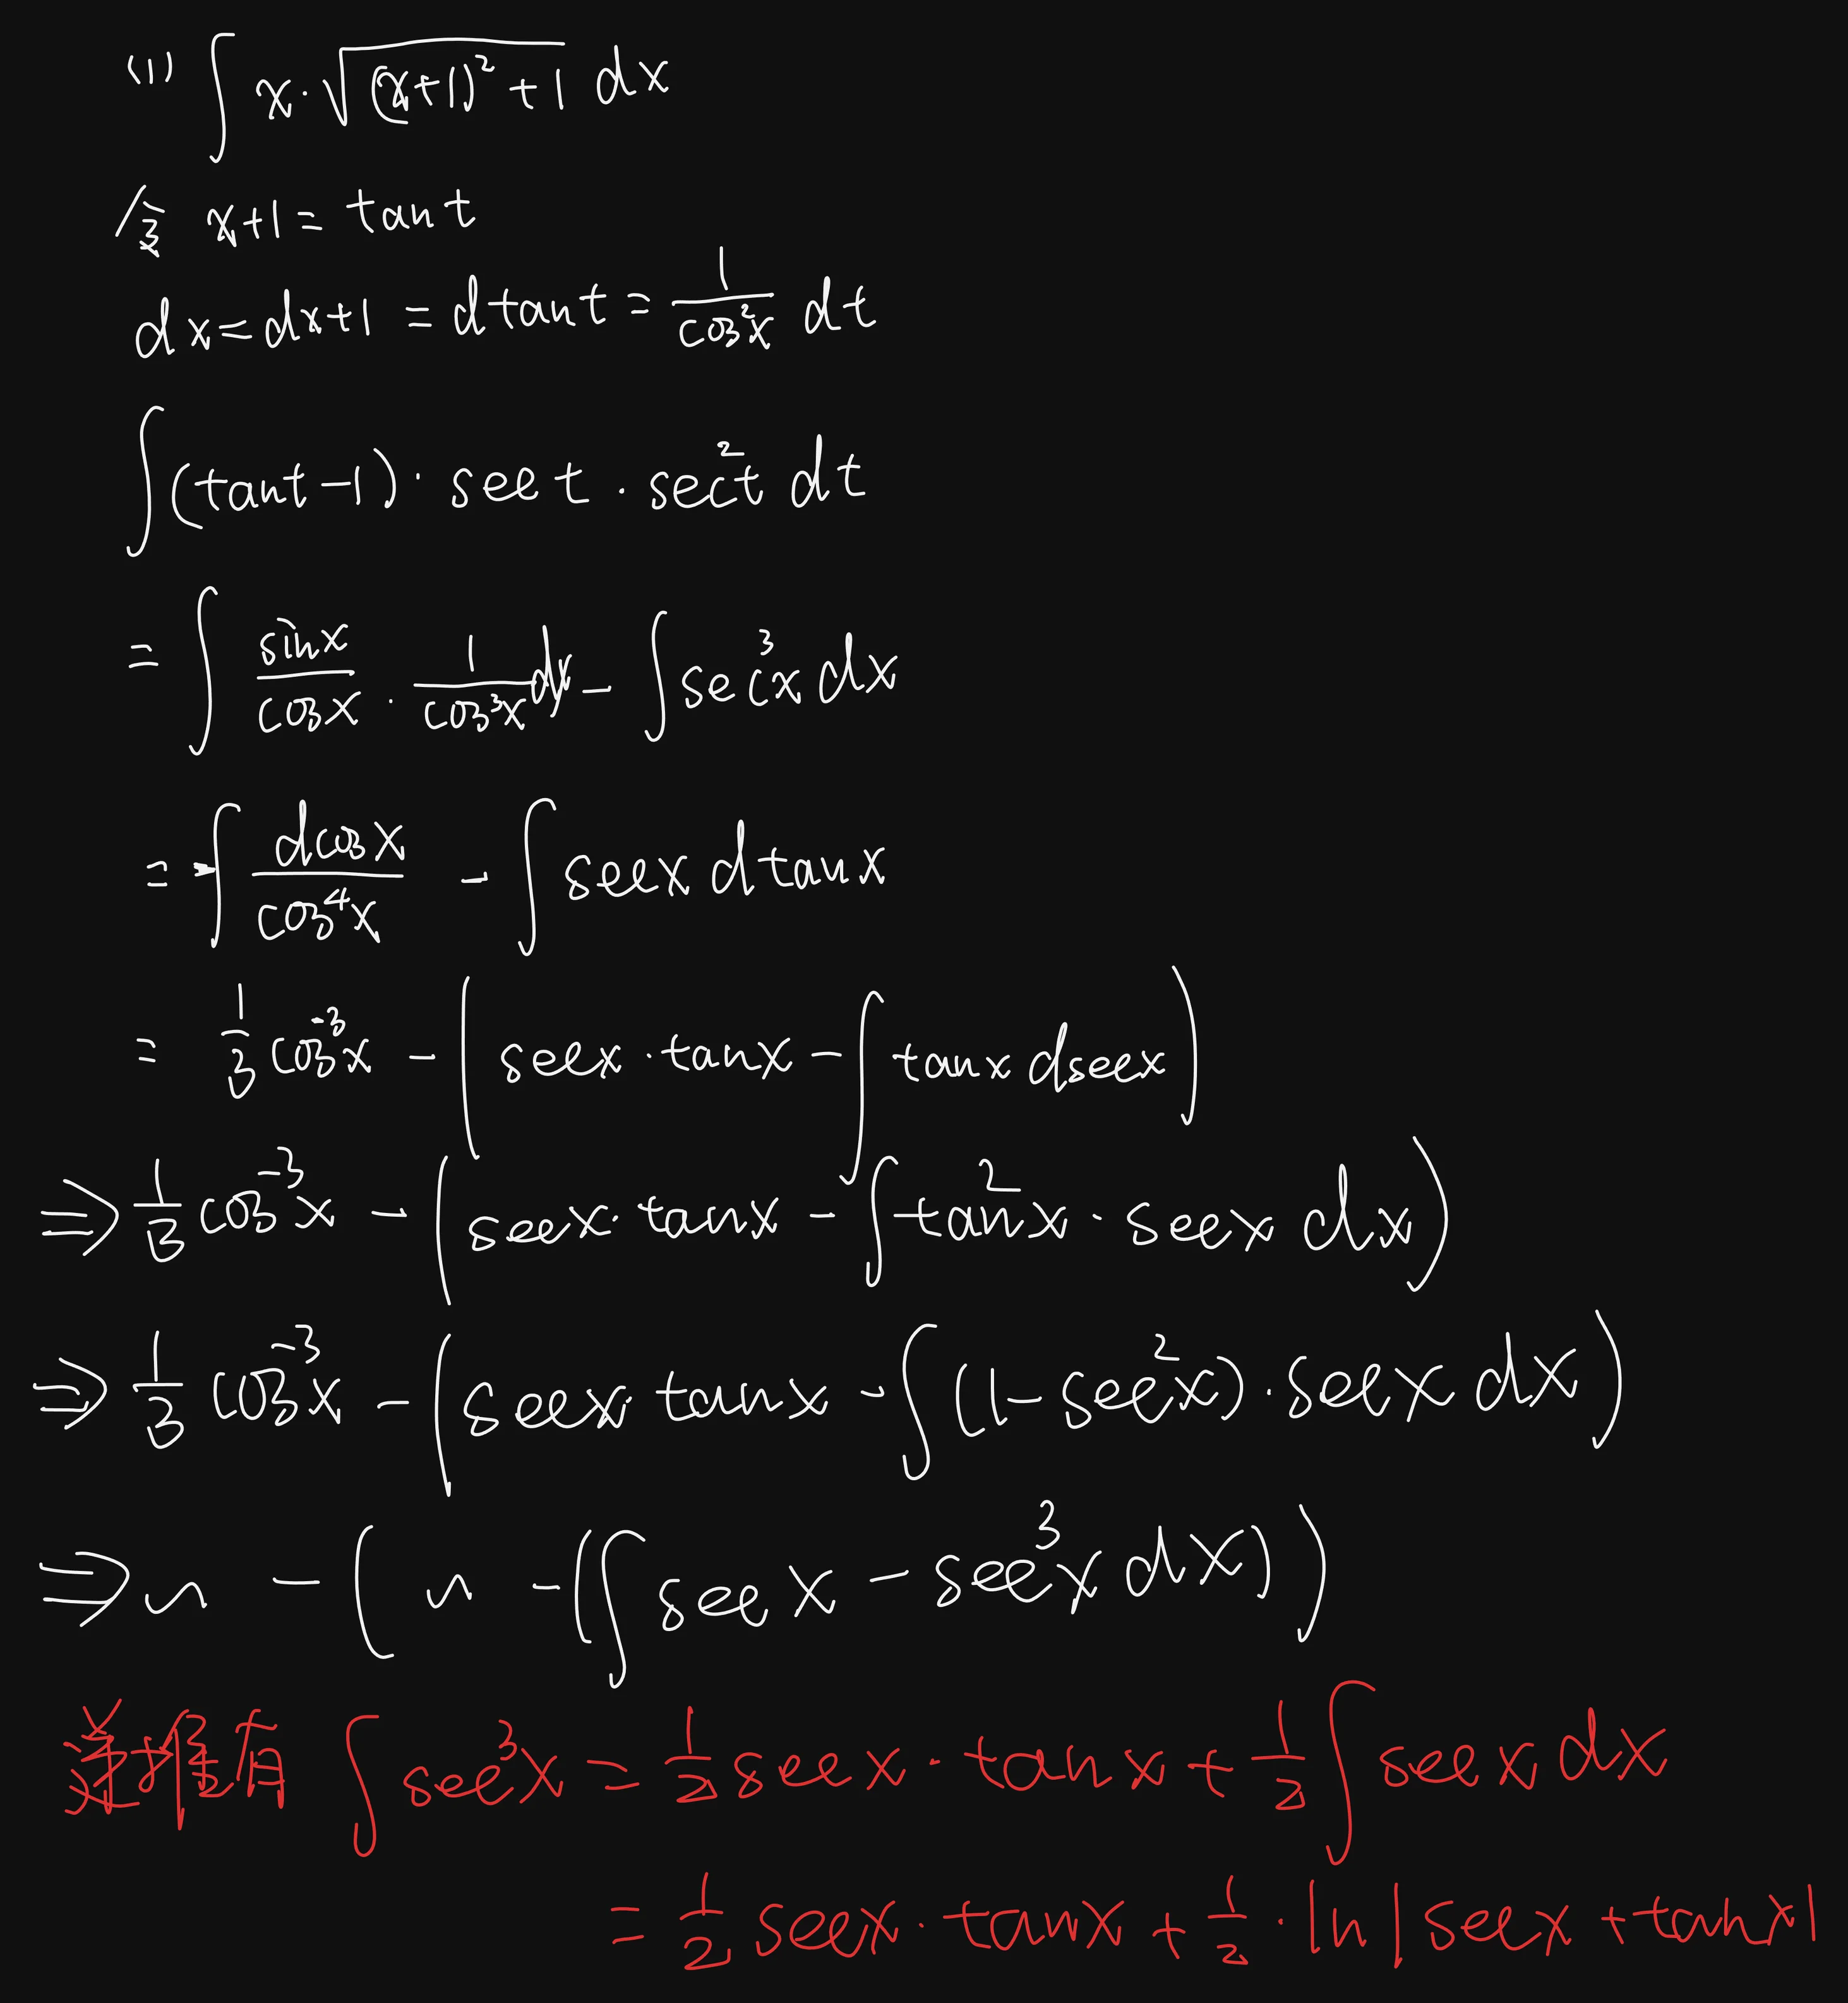 (1) ∫ x·√((x+1)²+1) dx
令 x+1 = tan t
dx = dx+1 = d tan t = 1/cos²x dt
∫ (tan t − 1) · sec t · sec² t dt
= ∫ sin x/cos x · 1/cos³x dx − ∫ sec³x dx
= −∫ d cos x/cos⁴x − ∫ sec x d tan x
= 1/3 cos⁻³x − (sec x · tan x − ∫ tan x d sec x)
⇒ 1/3 cos⁻³x − (sec x · tan x − ∫ tan²x · sec x dx)
⇒ 1/3 cos⁻³x − (sec x · tan x − ∫ (1 − sec²x) · sec x dx)
⇒ ~ − (~ − (∫ sec x − sec³x dx))
∫ sec³x = 1/2 sec x · tan x + 1/2 ∫ sec x dx
= 1/2 sec x · tan x + 1/2 · ln|sec x + tan x|